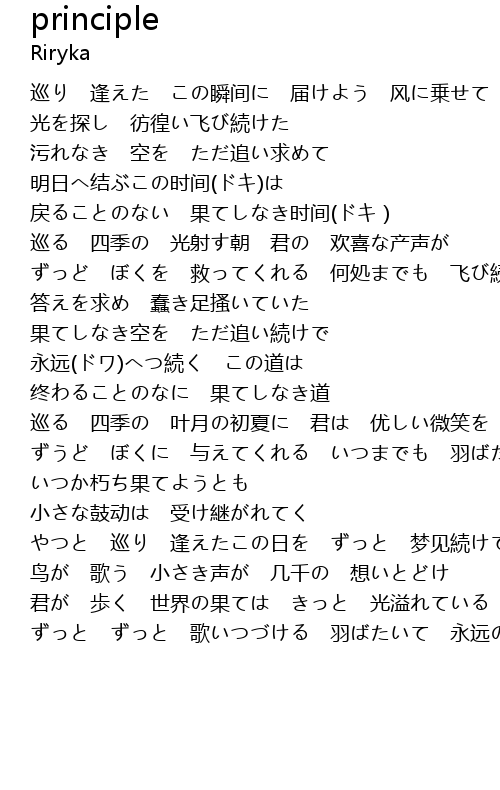 principle
Riryka
巡り　逢えた　この瞬间に　届けよう　风に乗せて
光を探し　彷徨い飞び続けた
污れなき　空を　ただ追い求めて
明日へ结ぶこの时间(ドキ)は
戻ることのない　果てしなき时间(ドキ )
巡る　四季の　光射す朝　君の　欢喜な产声が
ずっど　ぼくを　救ってくれる　何処までも　飞び続
答えを求め　蠢き足掻いていた
果てしなき空を　ただ追い続けで
永远(ドワ)へつ続く　この道は
终わることのなに　果てしなき道
巡る　四季の　叶月の初夏に　君は　优しい微笑を
ずうど　ぼくに　与えてくれる　いつまでも　羽ばた
いつか朽ち果てようとも
小さな鼓动は　受け継がれてく
やつと　巡り　逢えたこの日を　ずっと　梦见続けて
鸟が　歌う　小さき声が　几千の　想いとどけ
君が　歩く　世界の果ては　きっと　光溢れている
ずっと　ずっと　歌いつづける　羽ばたいて　永远の